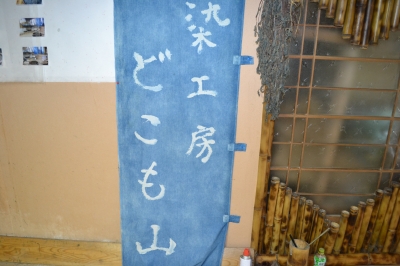 染工房
どこも山